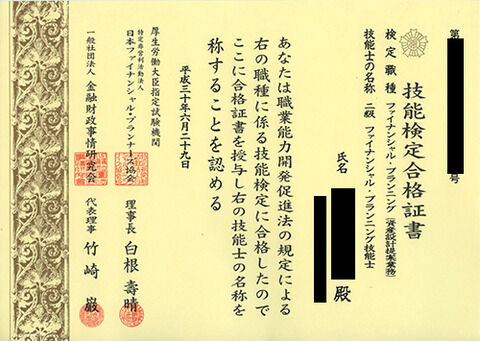 第
号
技能検定合格証書
検定職種 ファイナンシャル・プランニング(資産設計提案業務)
技能士の名称 二級 ファイナンシャル・プランニング技能士
氏名
殿
あなたは職業能力開発促進法の規定による
右の職種に係る技能検定に合格したので
ここに合格証書を授与し右の技能士の名称を
称することを認める
平成三十年六月二十九日
厚生労働大臣指定試験機関
特定非営利活動法人
日本ファイナンシャル・プランナーズ協会
理事長 白根壽晴
一般社団法人 金融財政事情研究会
代表理事 竹崎巌